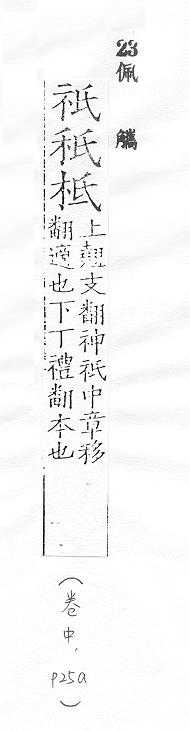 23 佩觿
祇秖柢
上翹支翻神祇中章移
翻適也下丁禮翻本也
(卷中, P25a)